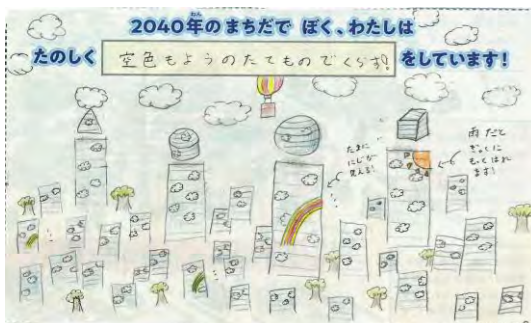 2040年のまちだで ぼく、わたしは
たのしく 空色もようのたてものでくらす! をしています!
たまに
にじが
見える!
雨だと
ぎゃくに
ます!